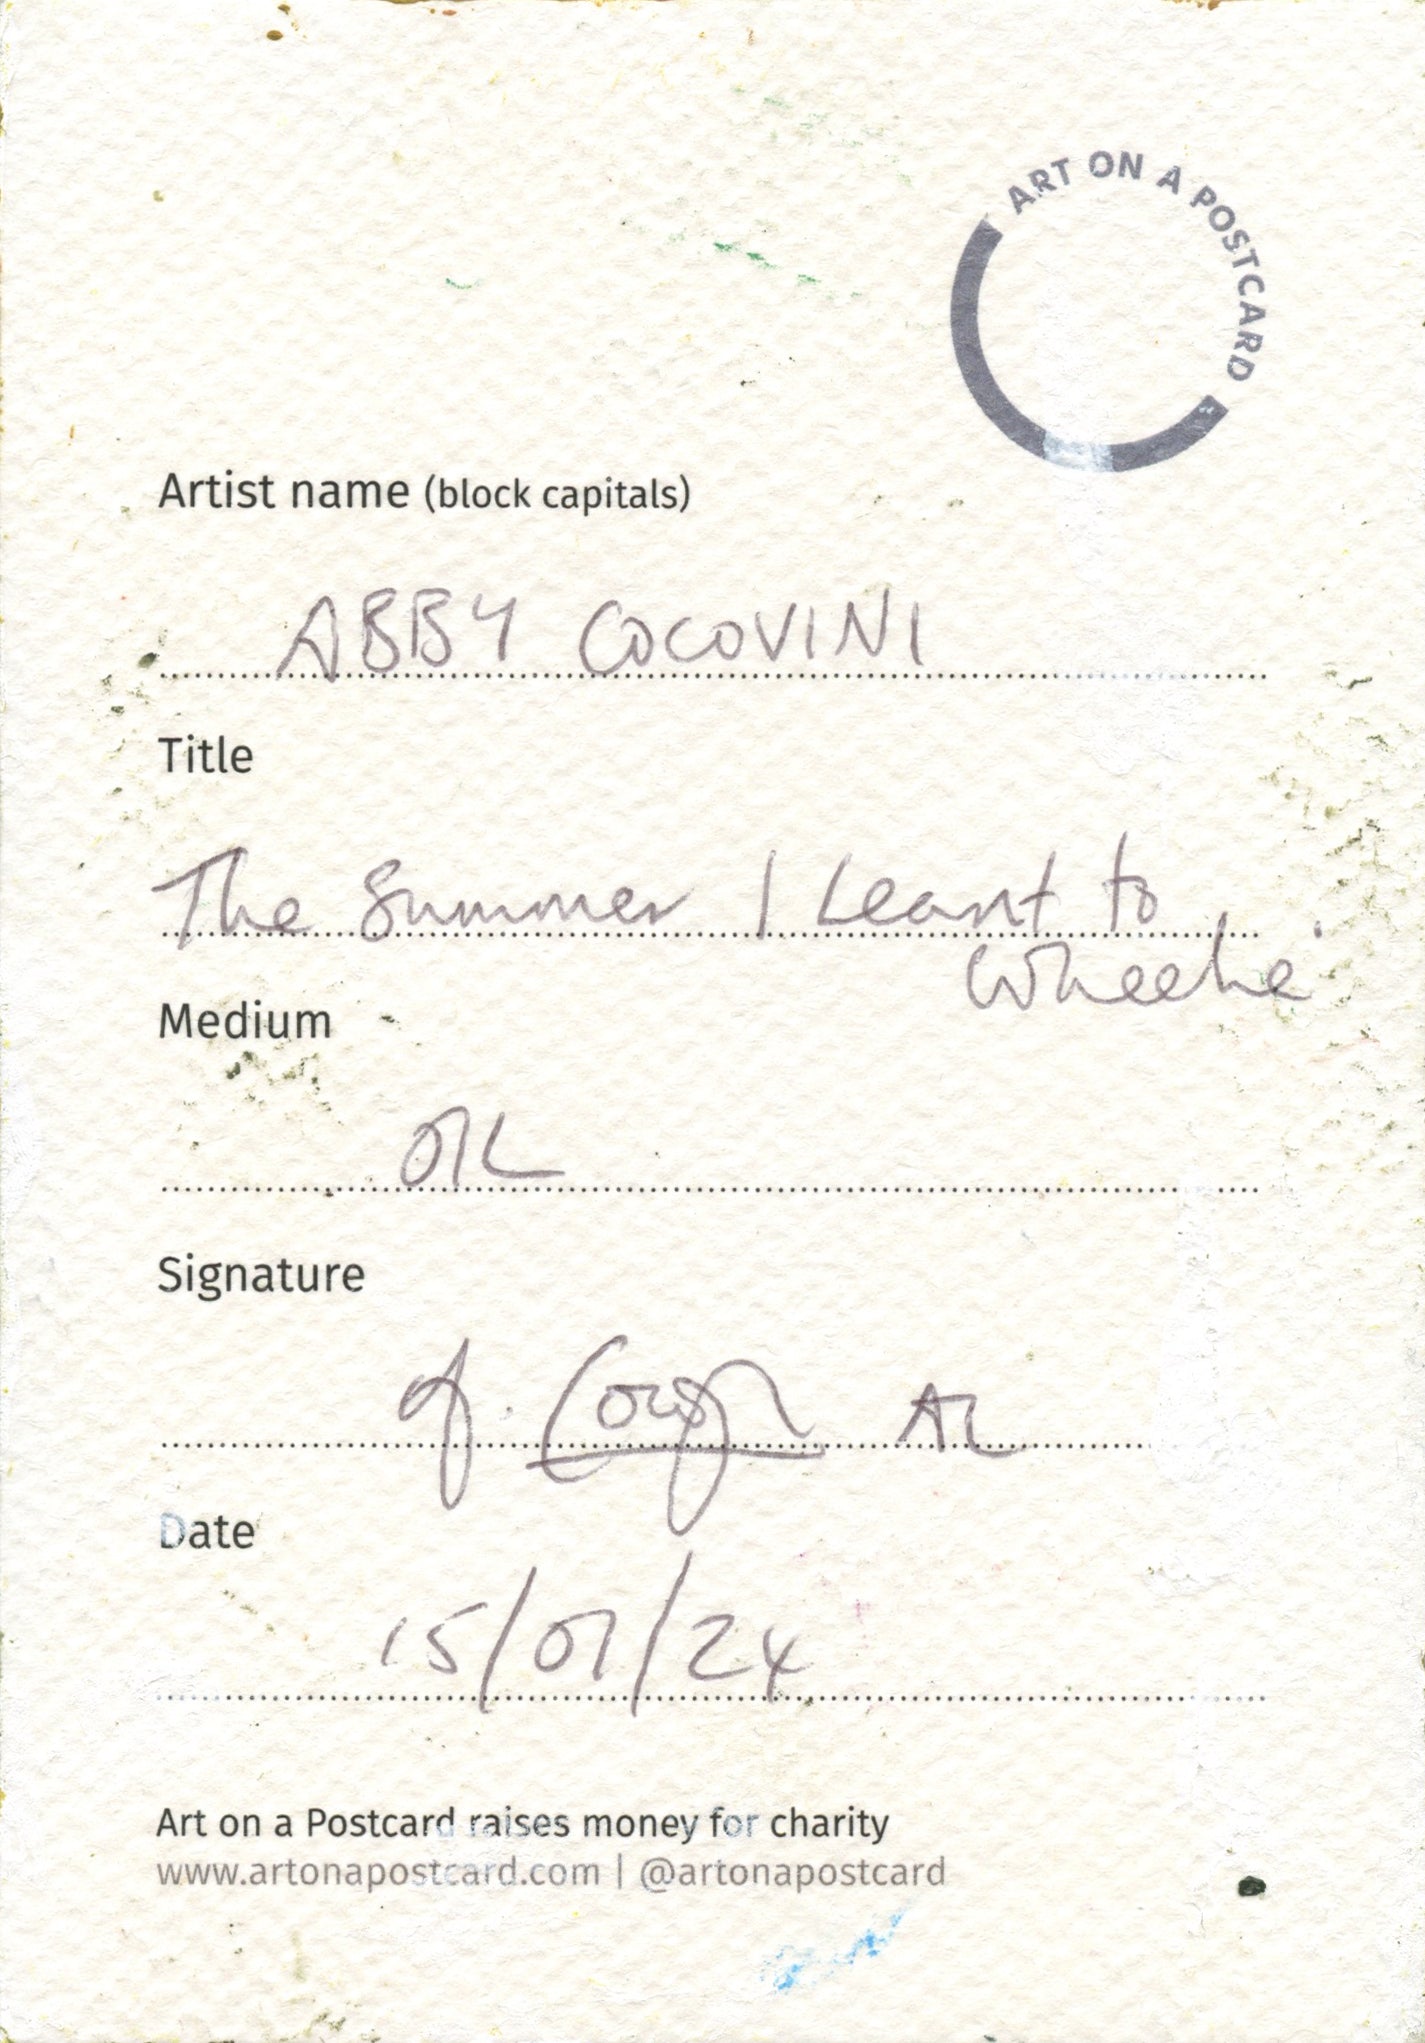 ART ON A POSTCARD
Artist name (block capitals)
ABBY COCOVINI
Title
The Summer I Learnt to
Wheelie
Medium
OIL
Signature
Date
15/01/24
Art on a Postcard raises money for charity
www.artonapostcard.com | @artonapostcard